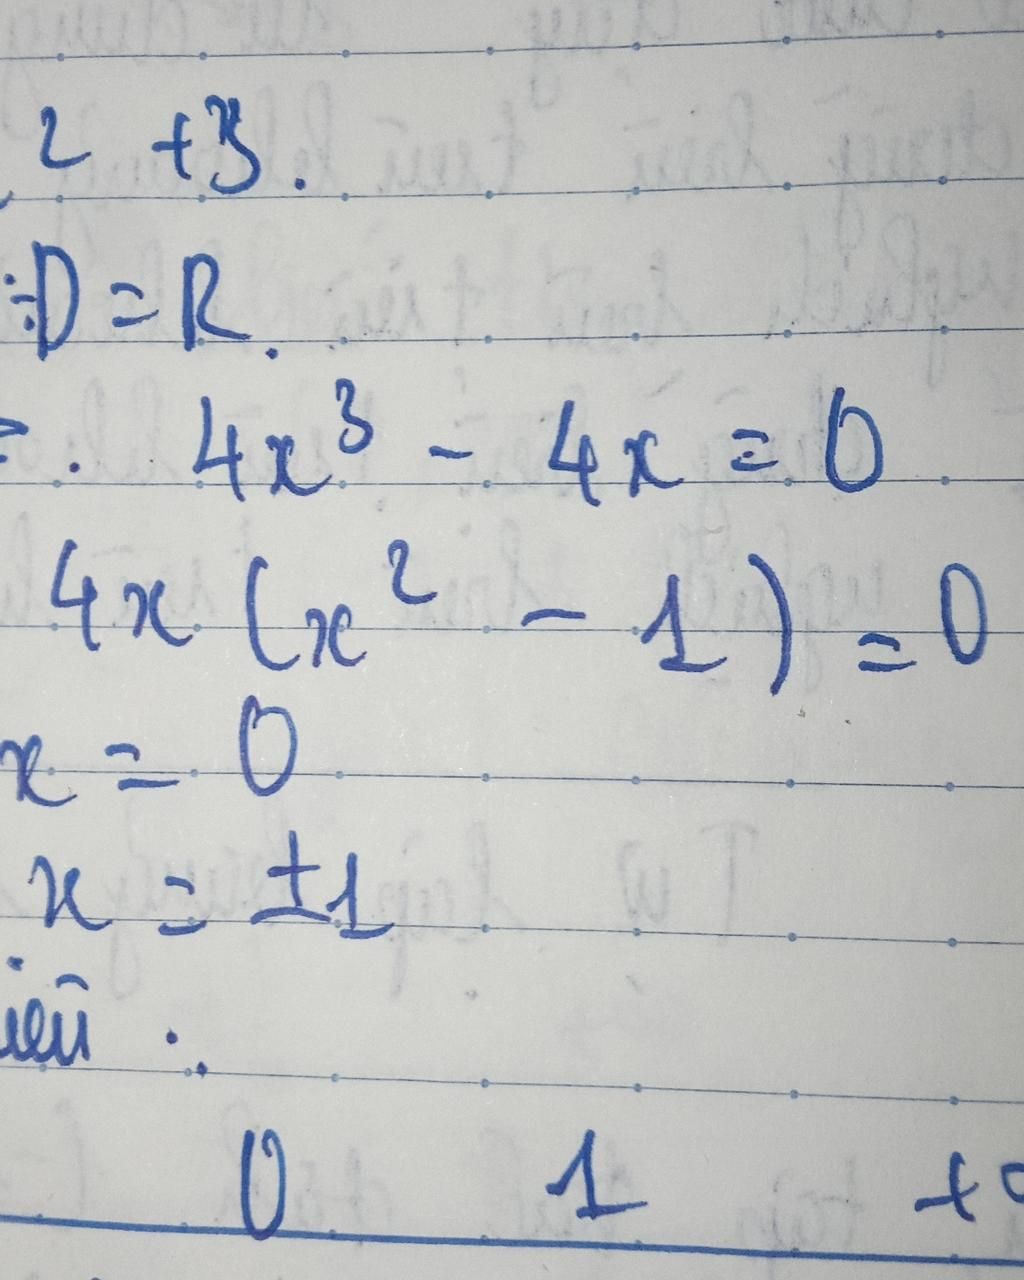 ² + 3.
: D = R.
4x³ - 4x = 0
4x (x² - 1) = 0
x = 0
x = ±1
0 1 +